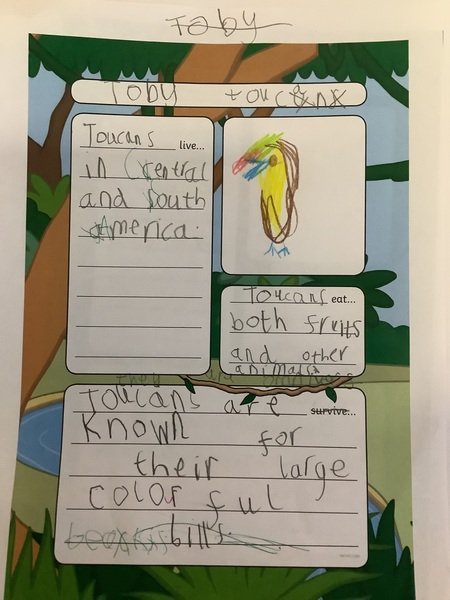 Toby
Toby toucans
Toucans live...
in Central
and South
America.
Toucans eat...
both fruits
and other
animals.
Toucans are survive...
known for
their large
colorful
bills.